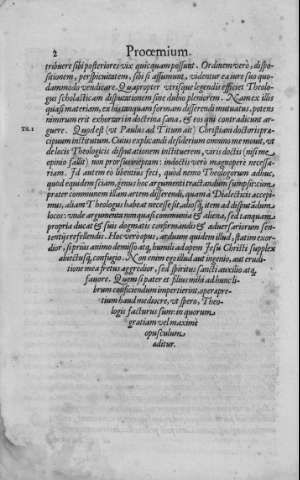 2 Proœmium.
tribuere sibi posteriores vix quicquam possunt. Ordinem verò, dispo-
sitionem, perspicuitatem, sibi si assumunt, videntur ea iure suo quo-
dammodo vendicare. Quapropter vtrisque legendis efficiet Theolo-
gus scholasticam disputationem sine dubio pleniorem. Nam ex illis
quasi materiam, ex his tanquam formam disserendi mutuatus, potens
nimirum erit exhortari in doctrina sana, & eos qui contradicunt ar-
guere. Quod est (vt Paulus ad Titum ait) Christiani doctoris præ-
Tit. 1
cipuum institutum. Cuius explicandi desiderium omnino me mouit, vt
de locis Theologicis disputationem instituerem, viris doctis iussime,
opinio fallit) non prorsus ineptam: indoctis verò magnopere necessa-
riam. Id autem eo libentius feci, quòd nemo Theologorum adhuc,
quod equidem sciam, genus hoc argumenti tractandum sumpsit: cùm
præter communem illam artem disserendi, quam à Dialecticis accepi-
mus, aliam Theologus habeat necesse sit, aliosq́; item ad disputandum
locos: vnde argumenta non quasi communia & aliena, sed tanquam
propria ducat & suis dogmatis confirmandis & aduersariorum sen-
tentijs refellendis. Hoc verò opus, arduum quidem illud, statim exor-
dior, spiritus animo demisso, atq́; humili ad opem Iesu Christi supplex
abiectusq́; confugio. Non enim ego illud aut ingenio, aut erudi-
tione mea fretus aggredior, sed spiritus sancti auxilio atq́;
fauore. Quem si pater et filius mihi ad hunc li-
brum conficiendum impertierint, operæpre-
tium haud mediocre, vt spero, Theo-
logis facturus sum: in quorum
gratiam vel maximè
opusculum
æditur.